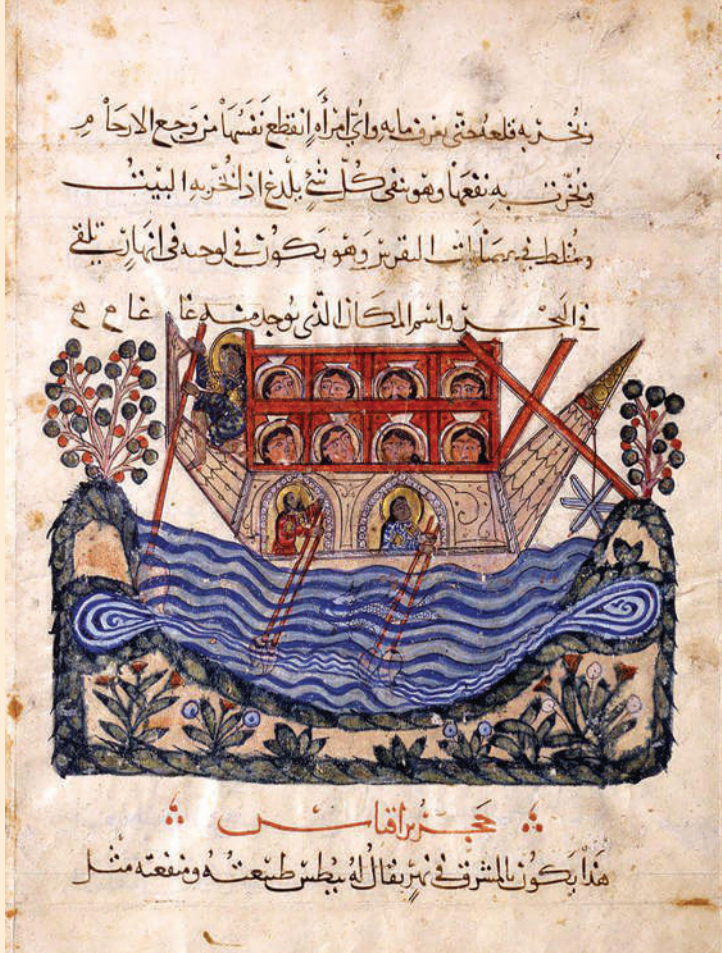 وتُخّر به قلعه حتّى يعرف ما به وايّ امرأهٍ انقطع نَفَسُهَا من وَجع الارحام
تبُخّرت به نفعَها وهو نفى كُلّ شئٍ يلدغ اذا بُخّر به البيتُ
ويُخلط فى النقرس وَهو يَكون فى لوحيه فى انهار تلقى
فى البَحر واسم المكان الذّى يوجد منه غاغا
حَجَرُ براقياس
هَذا يَكون بالمشرق فى نهرٍ يقال لهُ بُطس طبيعتُهُ ومنفعته مثل